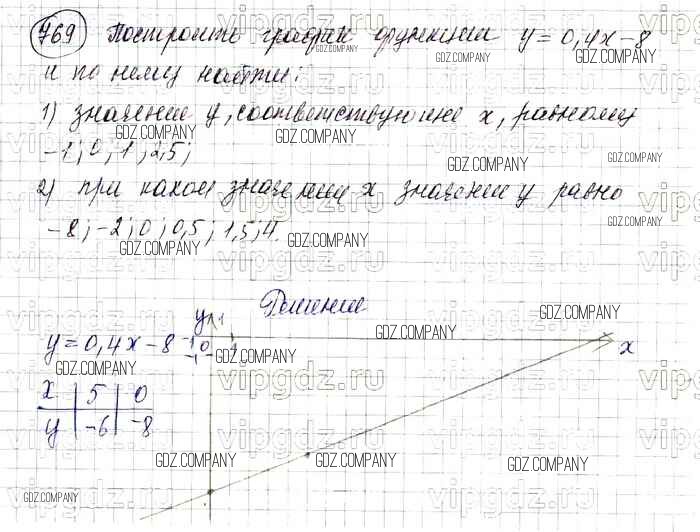 769 Построить график функции y=0,4x-8
и по нему найти:
1) значение y, соответствующие x, равному
-1; 0; 1; 2,5;
2) при каком значении x значение y равно
-8; -2; 0; 0,5; 1,5; 4.
Решение
y=0,4x-8
y 1
-1 0 1 x
-1
x 5 0
y -6 -8
GDZ.COMPANY
vipgdz.ru